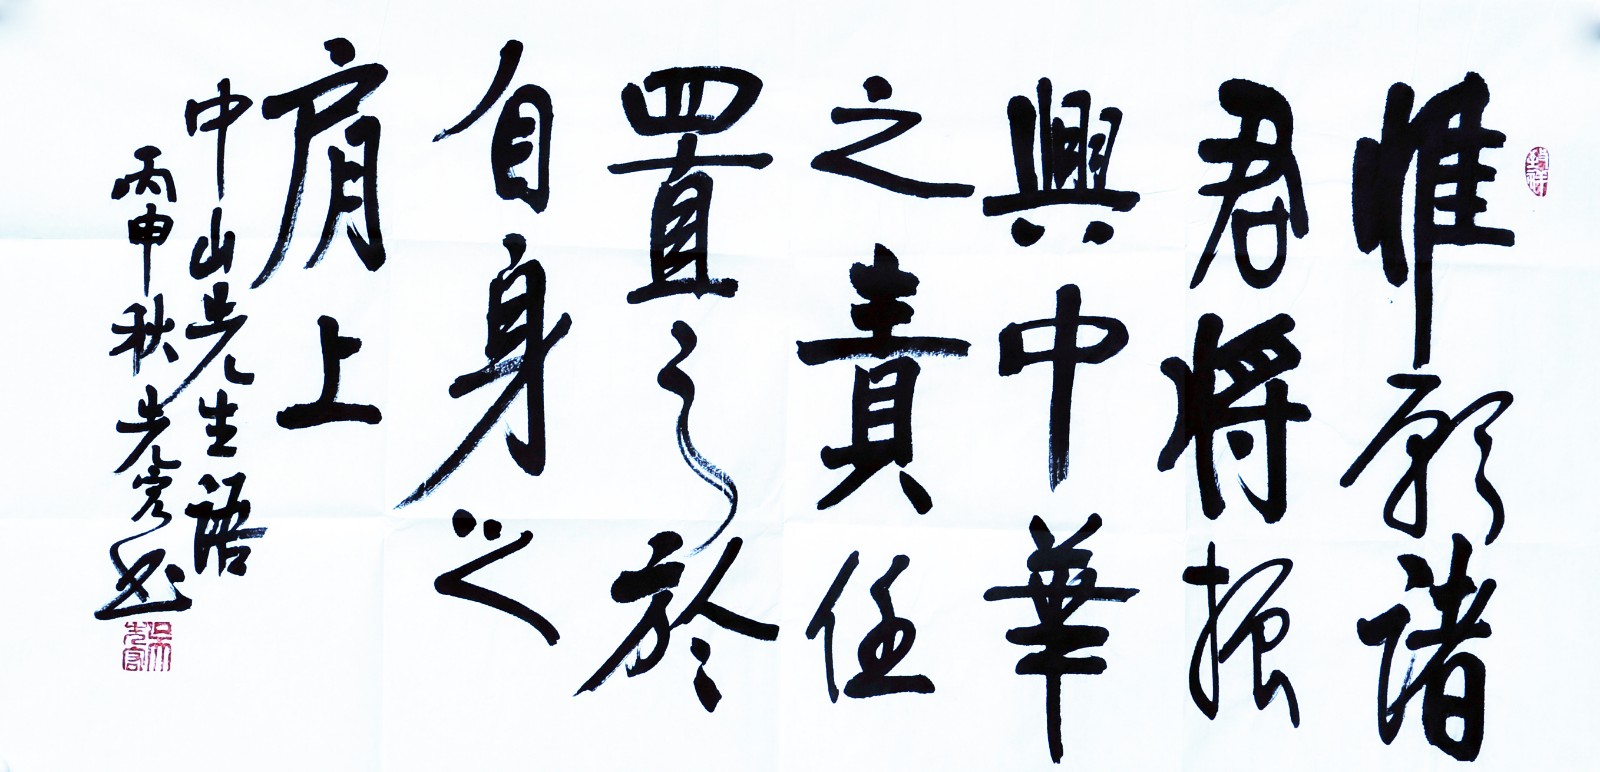 惟願諸
君將振
興中華
之責任
置之於
自身之
肩上
中山先生語
丙申秋先富书